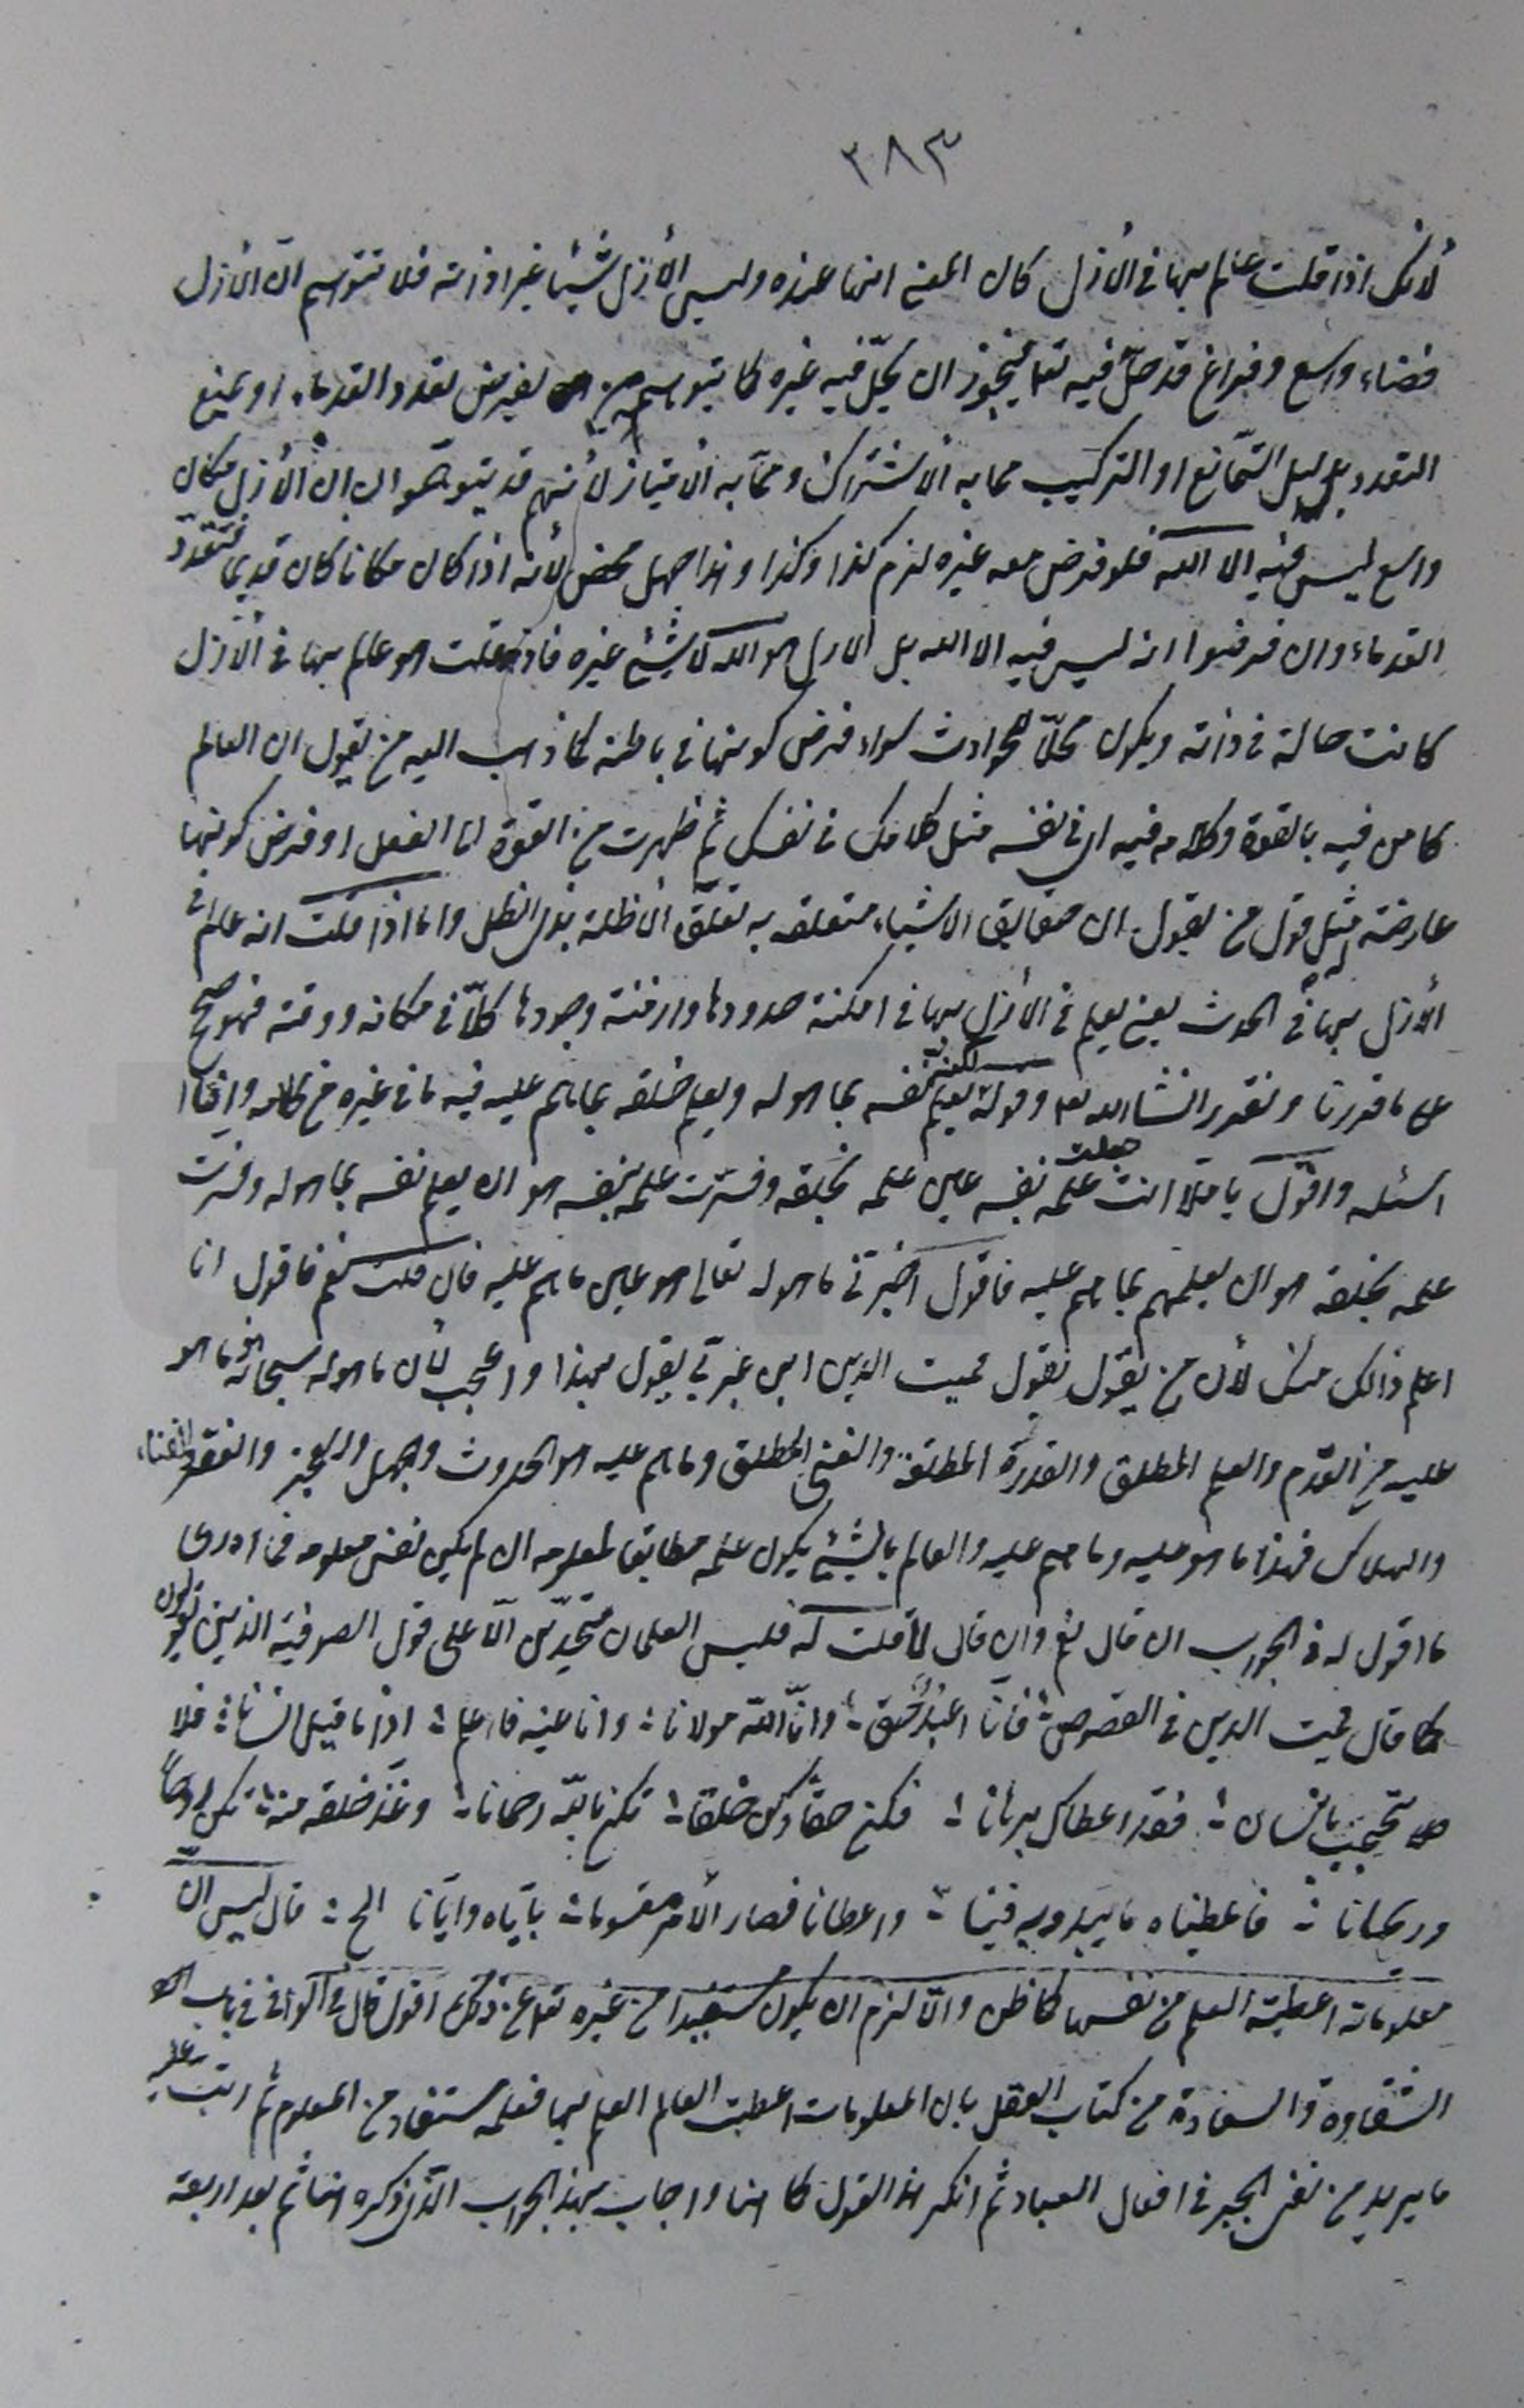 ٣٨٣
لأنك اذا قلت عالم بها فی الأزل كان المعنی انها عنده وليس الأزل شيئا غير ذاته فلا تتوهم ان الأزل
فضاء واسع وفراغ قد حلّ فيه تعا فيجوز ان يحلّ فيه غيره كما يتوهم من يفرض تعدد القدماء او يمنع
التعدد بدليل التّمانع او التركيب مما به الأشتراك ومما به الأمتياز لأنهم قد يتوهموا ان الأزل مكان
واسع ليس فيه الا الله فلو فرض معه غيره لزم كذا وكذا وهذا جهل محض لأنه اذا كان مكانا كان قديما فتتعدد
القدماء وان فرضوا انه ليس فيه الا الله بل الازل هو الله لا شیء غيره فاذا قلت هو عالم بها فی الأزل
كانت حالة فی ذاته ويكون محلّا للحوادث سواء فرض كونها فی باطنه كما ذهب اليه من يقول ان العالم
كامن فيه بالقوة وكلامه فيه ای فی نفسه مثل كلامك فی نفسك ثم ظهرت من القوة الی الفعل او فرض كونها
عارضة له مثل قول من يقول ان حقايق الاشياء متعلقه به تعلّق الأظلة بذی الظل واما اذا قلت انه عالم فی
الأزل بها فی الحدث يعنی يعلم فی الأزل بها فی امكنة حدودها وازمنة وجودها كلّا فی مكانه ووقته فهو صحيح
علی ما قررنا ونقرر انشاء الله تعا وقوله لكنه يعلم نفسه بما هو له ويعلم خلقه بما هم عليه فيه ما فی غيره من كلامه وانا
اسئله واقول يا ملّا انت جعلت علمه بنفسه عين علمه بخلقه وفسّرت علمه بنفسه هو ان يعلم نفسه بما هو له وفسّرت
علمه بخلقه هو ان يعلمهم بما هم عليه فاقول اخبرنی ما هو له تعالی هو عين ما هم عليه فان قلت نعم فاقول انا
اعلم ذالك منك لأن من يقول بقول مميت الدين ابن عربی يقول بهذا واعجب لأن ما هو له سبحانه هو ما هو
عليه من القدم والعلم المطلق والقدرة المطلقة والغنی المطلق وما هم عليه هو الحدوث والجهل والعجز والفقر والفناء
والهلاك فهذا ما هو عليه وما هم عليه والعالم بالشیء يكون علمه مطابقا لمعلومه ان لم يكن نفس معلومه فما ادری
ما اقول له فی الجواب ان قال نعم وان قال لا قلت له فليس العلمان متحدين الّا علی قول الصوفية الذين يقولون
كما قال مميت الدين فی الفصوص فانّا اعبد حقا وانّ الله مولانا وانا عينه فاعلم اذا ما قيل انسانا فلا
تحتجب بانسان فقد اعطاك برهانا فكن حقا وكن خلقا تكن بالله رحمانا وغذّ خلقه منه تكن روحا
وريحانا فاعطيناه ما يبدو به فينا واعطانا فصار الأمر مقسوما بايّاه وايّانا الخ قال ليس ان
معلوماته اعطته العلم من نفسها كما ظن والّا لزم ان يكون مستفيدا من غيره تعا عن ذلك اقول قال فی الوافی فی باب
الشقاوة والسعادة من كتاب العقل بان المعلومات اعطت العالم العلم بها فعلمه مستفاد من المعلوم ثم رتب عليه
ما يريد من نفی الجبر فی افعال العباد ثم انكر هذا القول كما هنا واجاب بهذا الجواب الّذی ذكره هنا ثم بعد اربعة